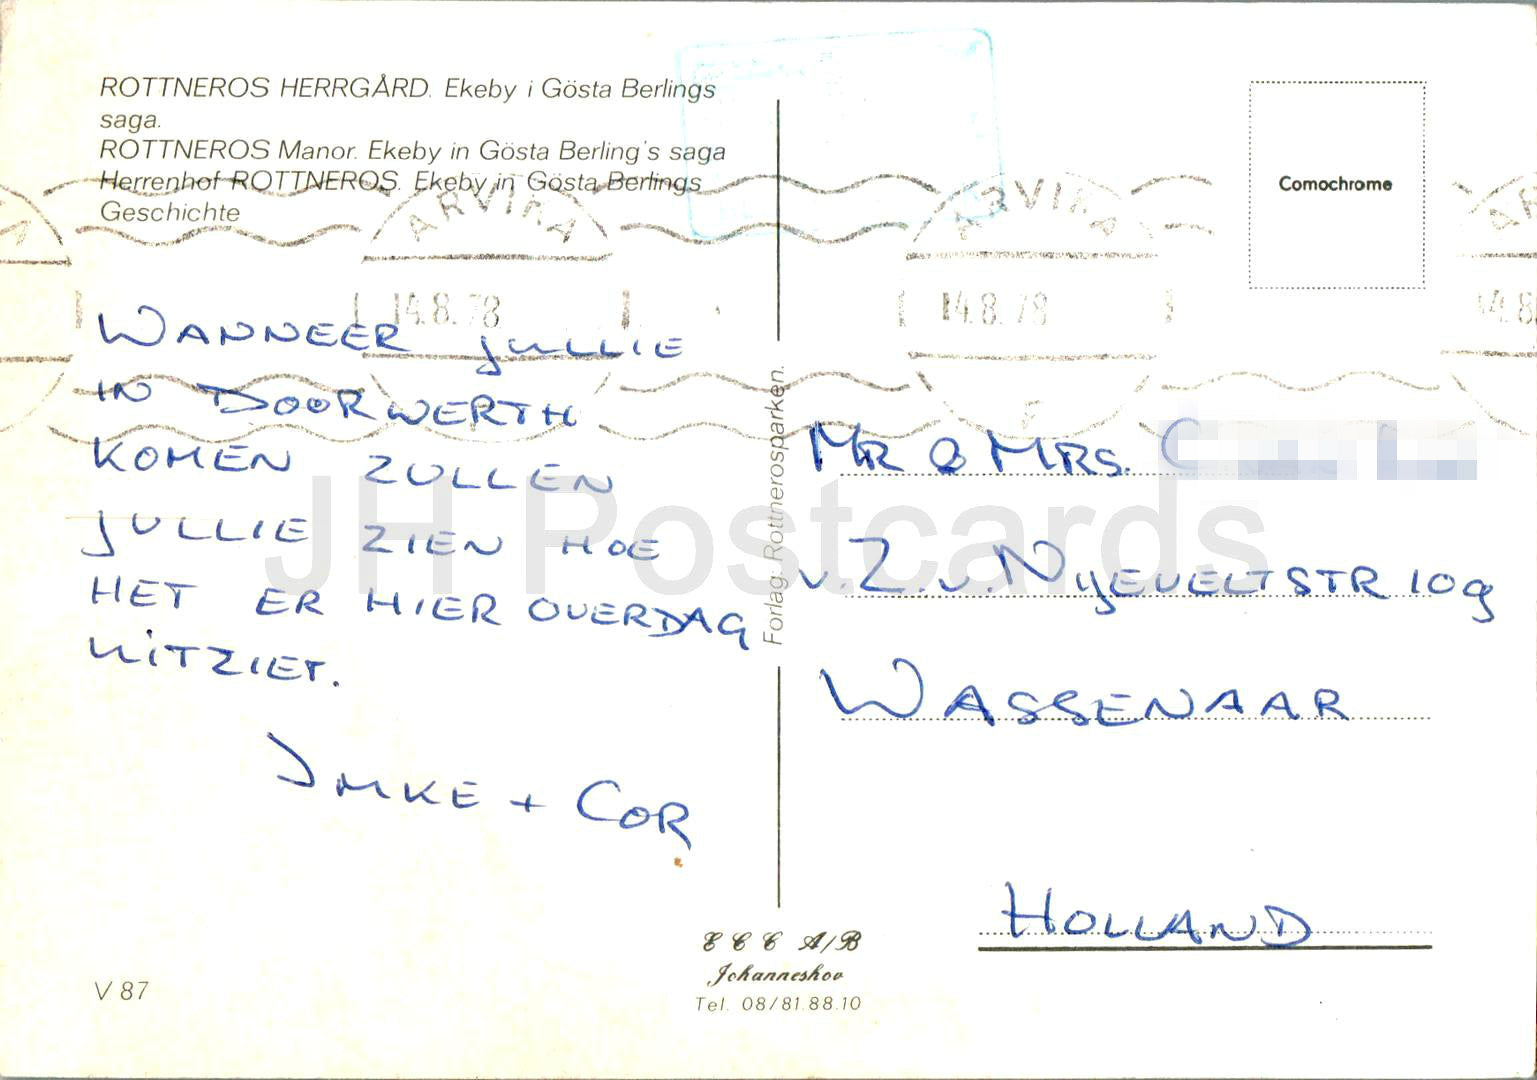 ROTTNEROS HERRGÅRD. Ekeby i Gösta Berlings
saga.
ROTTNEROS Manor. Ekeby in Gösta Berling's saga
Herrenhof ROTTNEROS. Ekeby in Gösta Berlings
Geschichte
Comochrome
ARVIKA
14.8.78
ARVIKA
14.8.78
WANNEER JULLIE
IN DOORWERTH
KOMEN ZULLEN
JULLIE ZIEN HOE
HET ER HIER OVERDAG
UITZIET.
IMKE + COR
Forlag: Rottnerosparken.
MR & MRS. C
v. Z. v. NIJEVELTSTR 109
WASSENAAR
HOLLAND
JH Postcards
V 87
CCC A/B
Johanneshov
Tel. 08/81.88.10